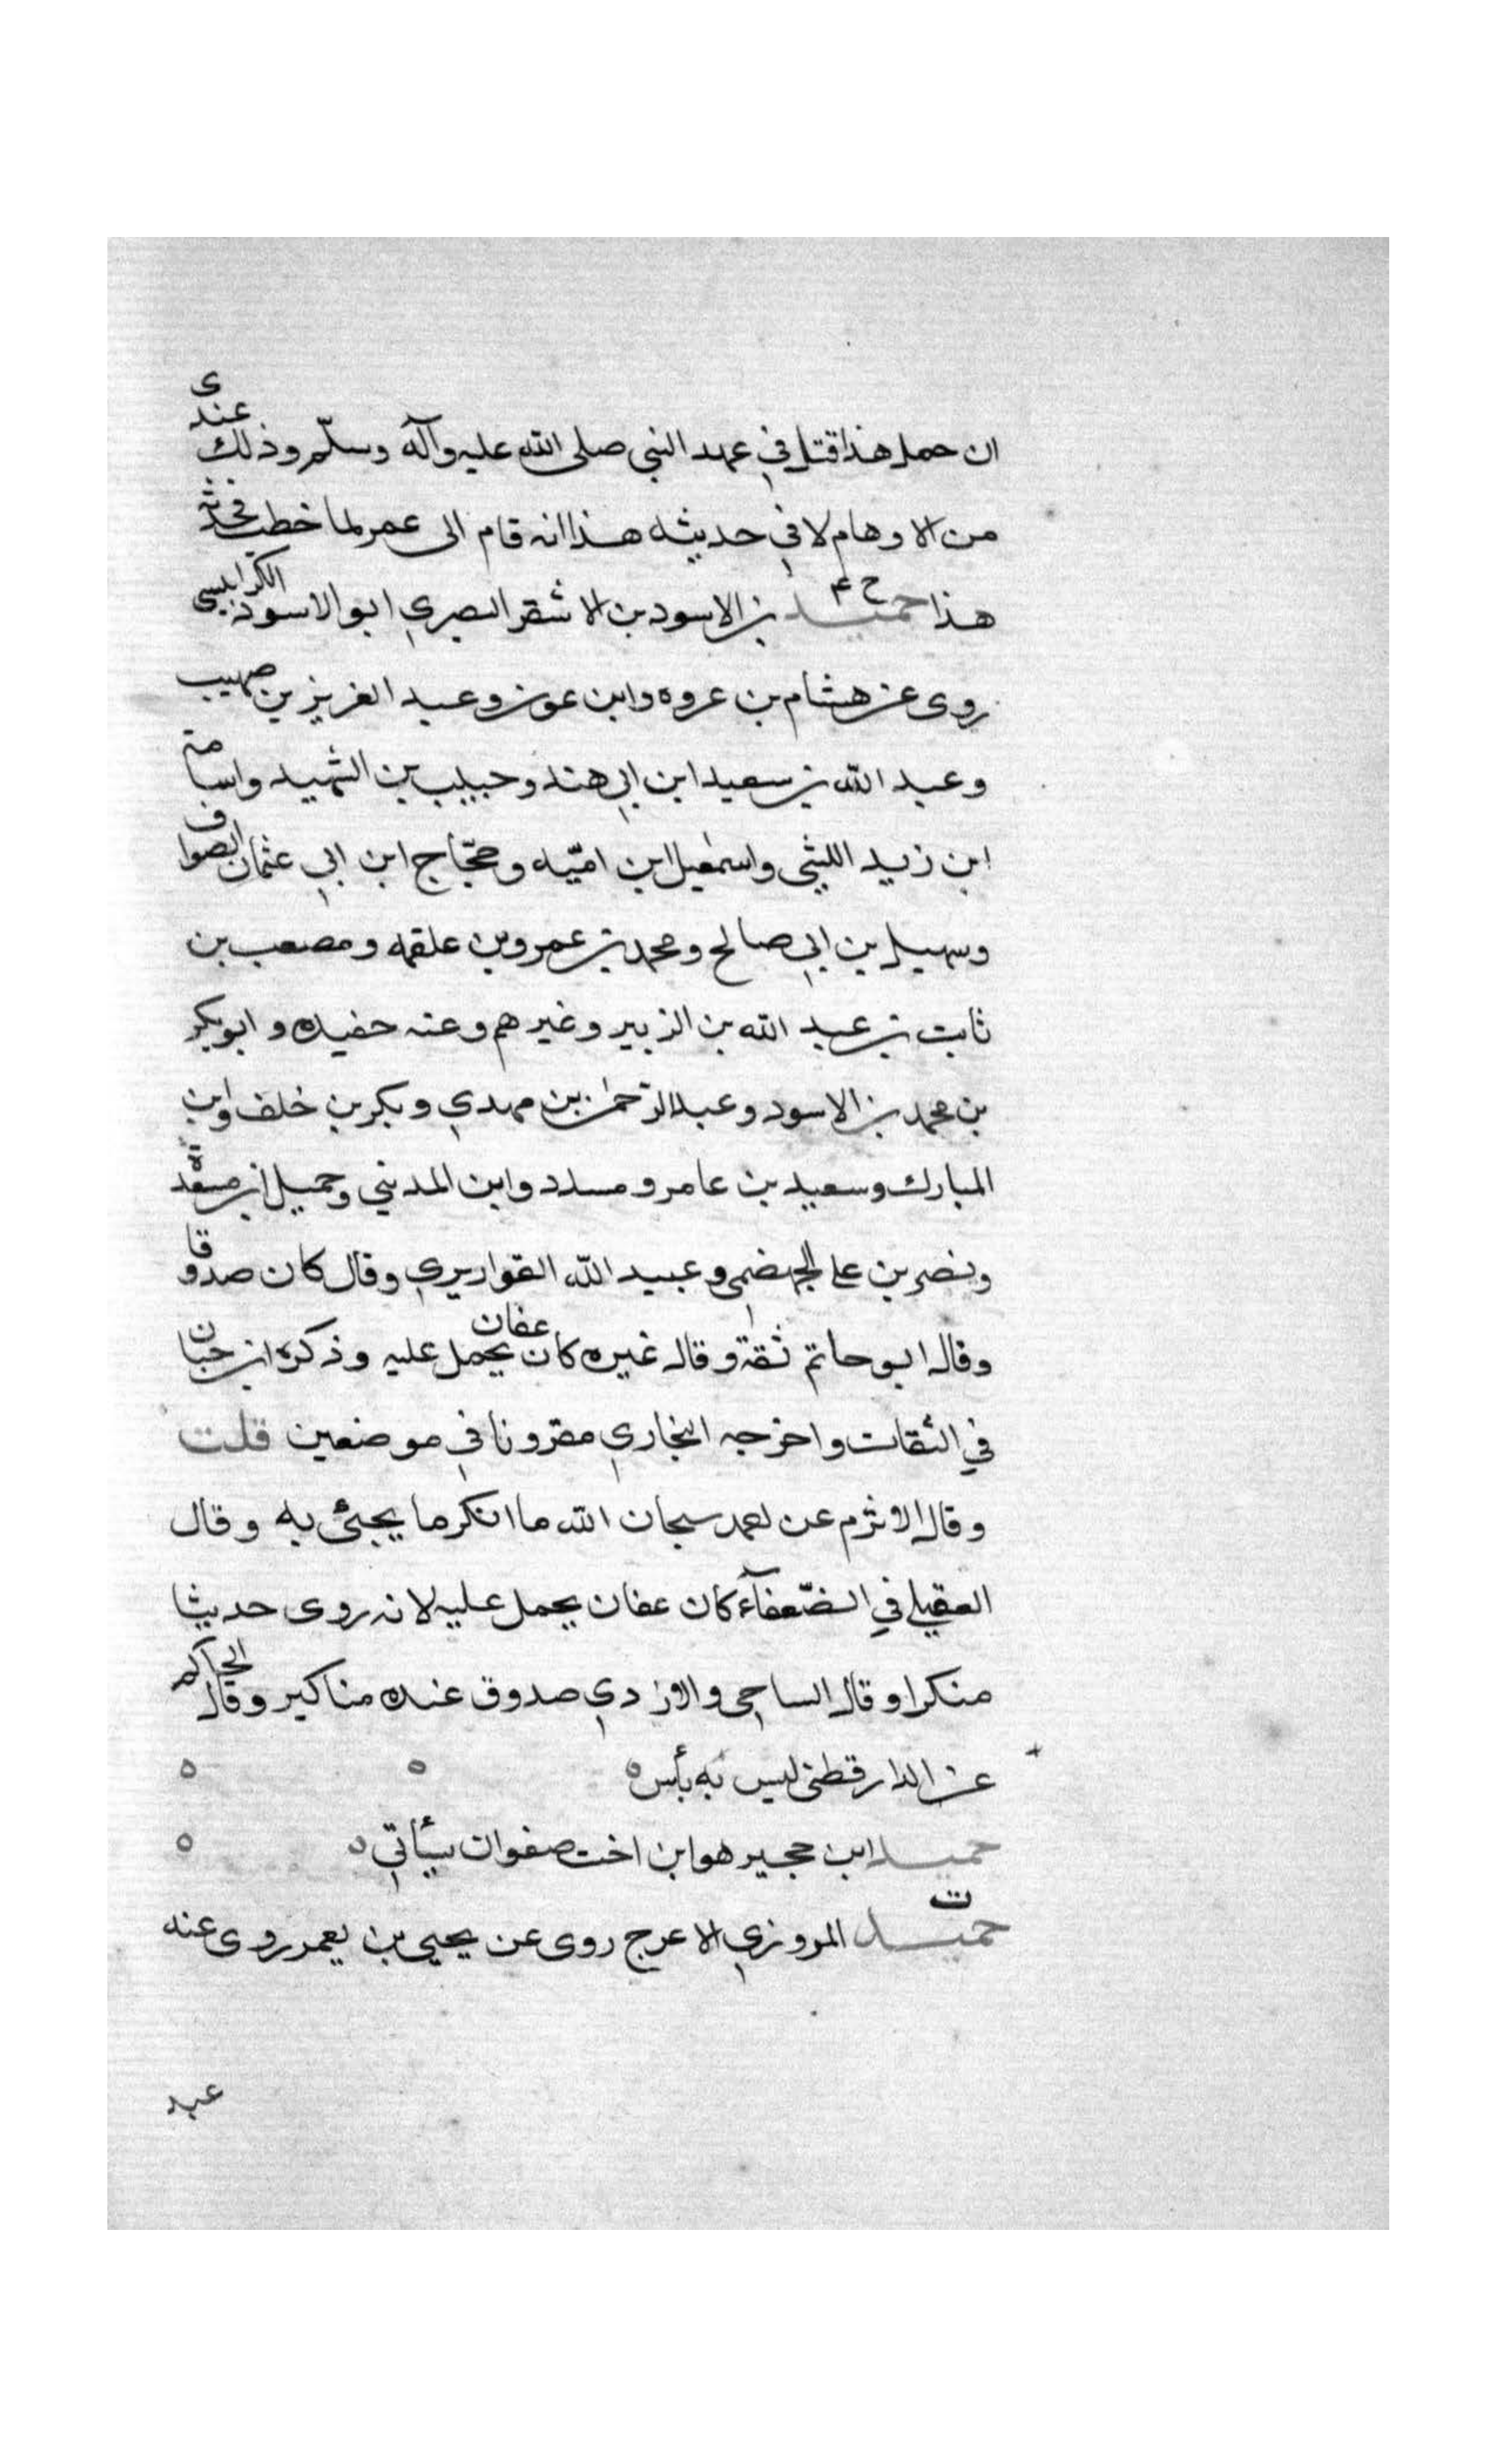 ان حمل هذا قتل في عهد النبي صلى الله عليه وآله وسلّم وذلك عندى
من الاوهام لا في حديثه هذا انه قام الى عمر لما خطب فحدثه
هذا حميد ح ٤ بن الاسود بن الاشقر البصري ابو الاسود الكرابيسي
روى عن هشام بن عروه وابن عون وعبد العزيز بن صهيب
وعبد الله بن سعيد ابن ابي هند وحبيب بن الشهيد واسامة
ابن زيد الليثي واسمعيل ابن اميّه وحجّاج ابن ابي عثمان الصواف
وسهيل بن ابي صالح ومحمد بن عمرو بن علقمه ومصعب بن
ثابت بن عبد الله بن الزبير وغيرهم وعنه حفيده وابو بكر
بن محمد بن الاسود وعبد الرحمن بن مهدي وبكر بن خلف وابن
المبارك وسعيد بن عامر ومسدد وابن المديني وحميد بن مسعدة
ونصر بن على الجهضمي وعبيد الله القواريري وقال كان صدوقا
وقال ابو حاتم ثقة وقال غيره كان عفان يحمل عليه وذكره ابن حبان
في الثقات واخرجه البخاري مقرونا في موضعين قلت
وقال الاثرم عن احمد سبحان الله ما انكر ما يجيئ به وقال
العقيلي في الضّعفآء كان عفان يحمل عليه لانه روى حديثا
منكرا وقال الساجي والازدي صدوق عنده مناكير وقال الحاكم
عن الدارقطني ليس به بأس ه ه ه
حميد ابن حجير هو ابن اخت صفوان سيأتي ه ه
حميد ت المروزي الاعرج روى عن يحيى بن يعمر روى عنه
عبد